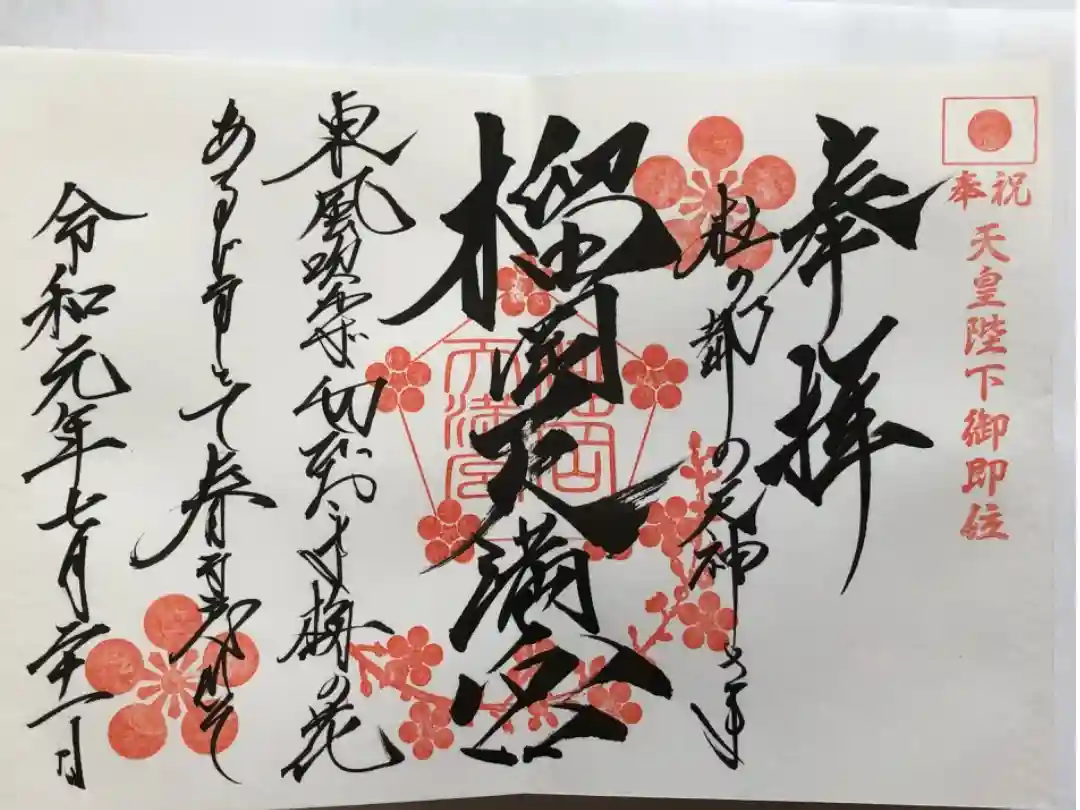 奉祝
天皇陛下御即位
奉拝
杜の都の天神さま
榴岡天満宮
榴岡
天満宮
東風吹かば匂ひおこせよ梅の花
あるじなしとて春なわすれそ
令和元年七月二十一日